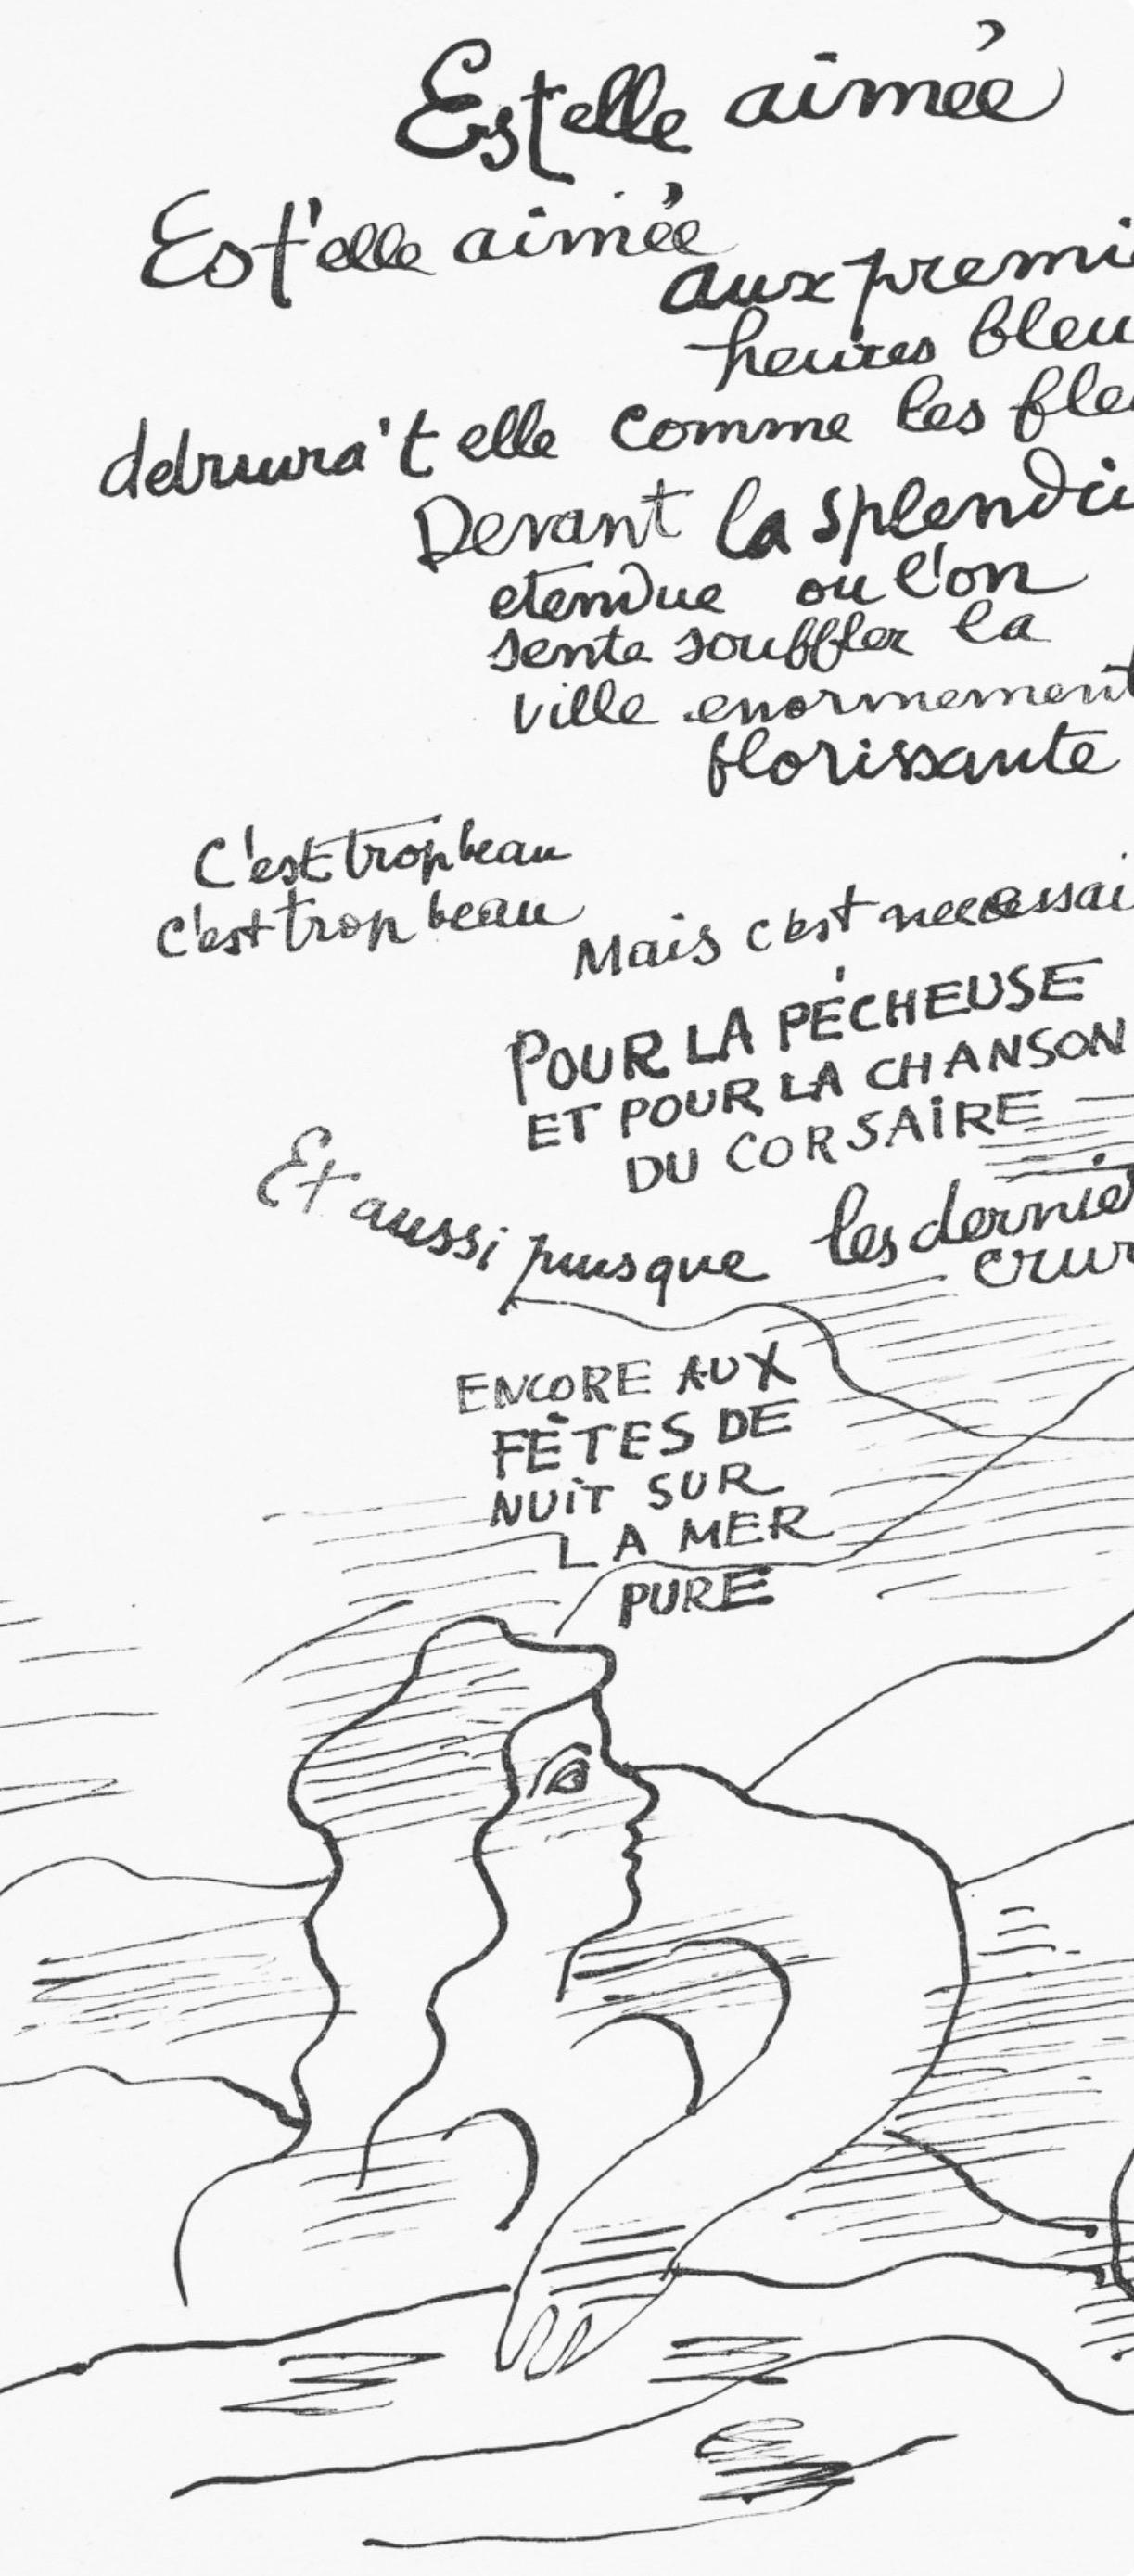 Estelle aimée
Est'elle aimée
aux premi
heures bleu
detruira't elle comme les fleu
Devant la splendi
etendue ou l'on
sente souffler la
ville enormement
florissante
C'est trop beau
c'est trop beau
Mais c'est necessai
POUR LA PÉCHEUSE
ET POUR LA CHANSON
DU CORSAIRE
Et aussi puisque les dernier
crur
ENCORE AUX
FÊTES DE
NUIT SUR
LA MER
PURE